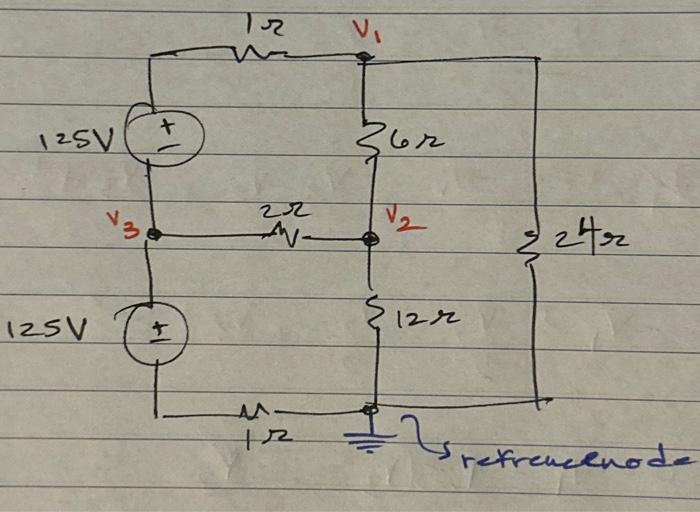 1Ω
V1
125V
+
-
6Ω
V3
2Ω
V2
24Ω
125V
+
-
12Ω
1Ω
refrencenode